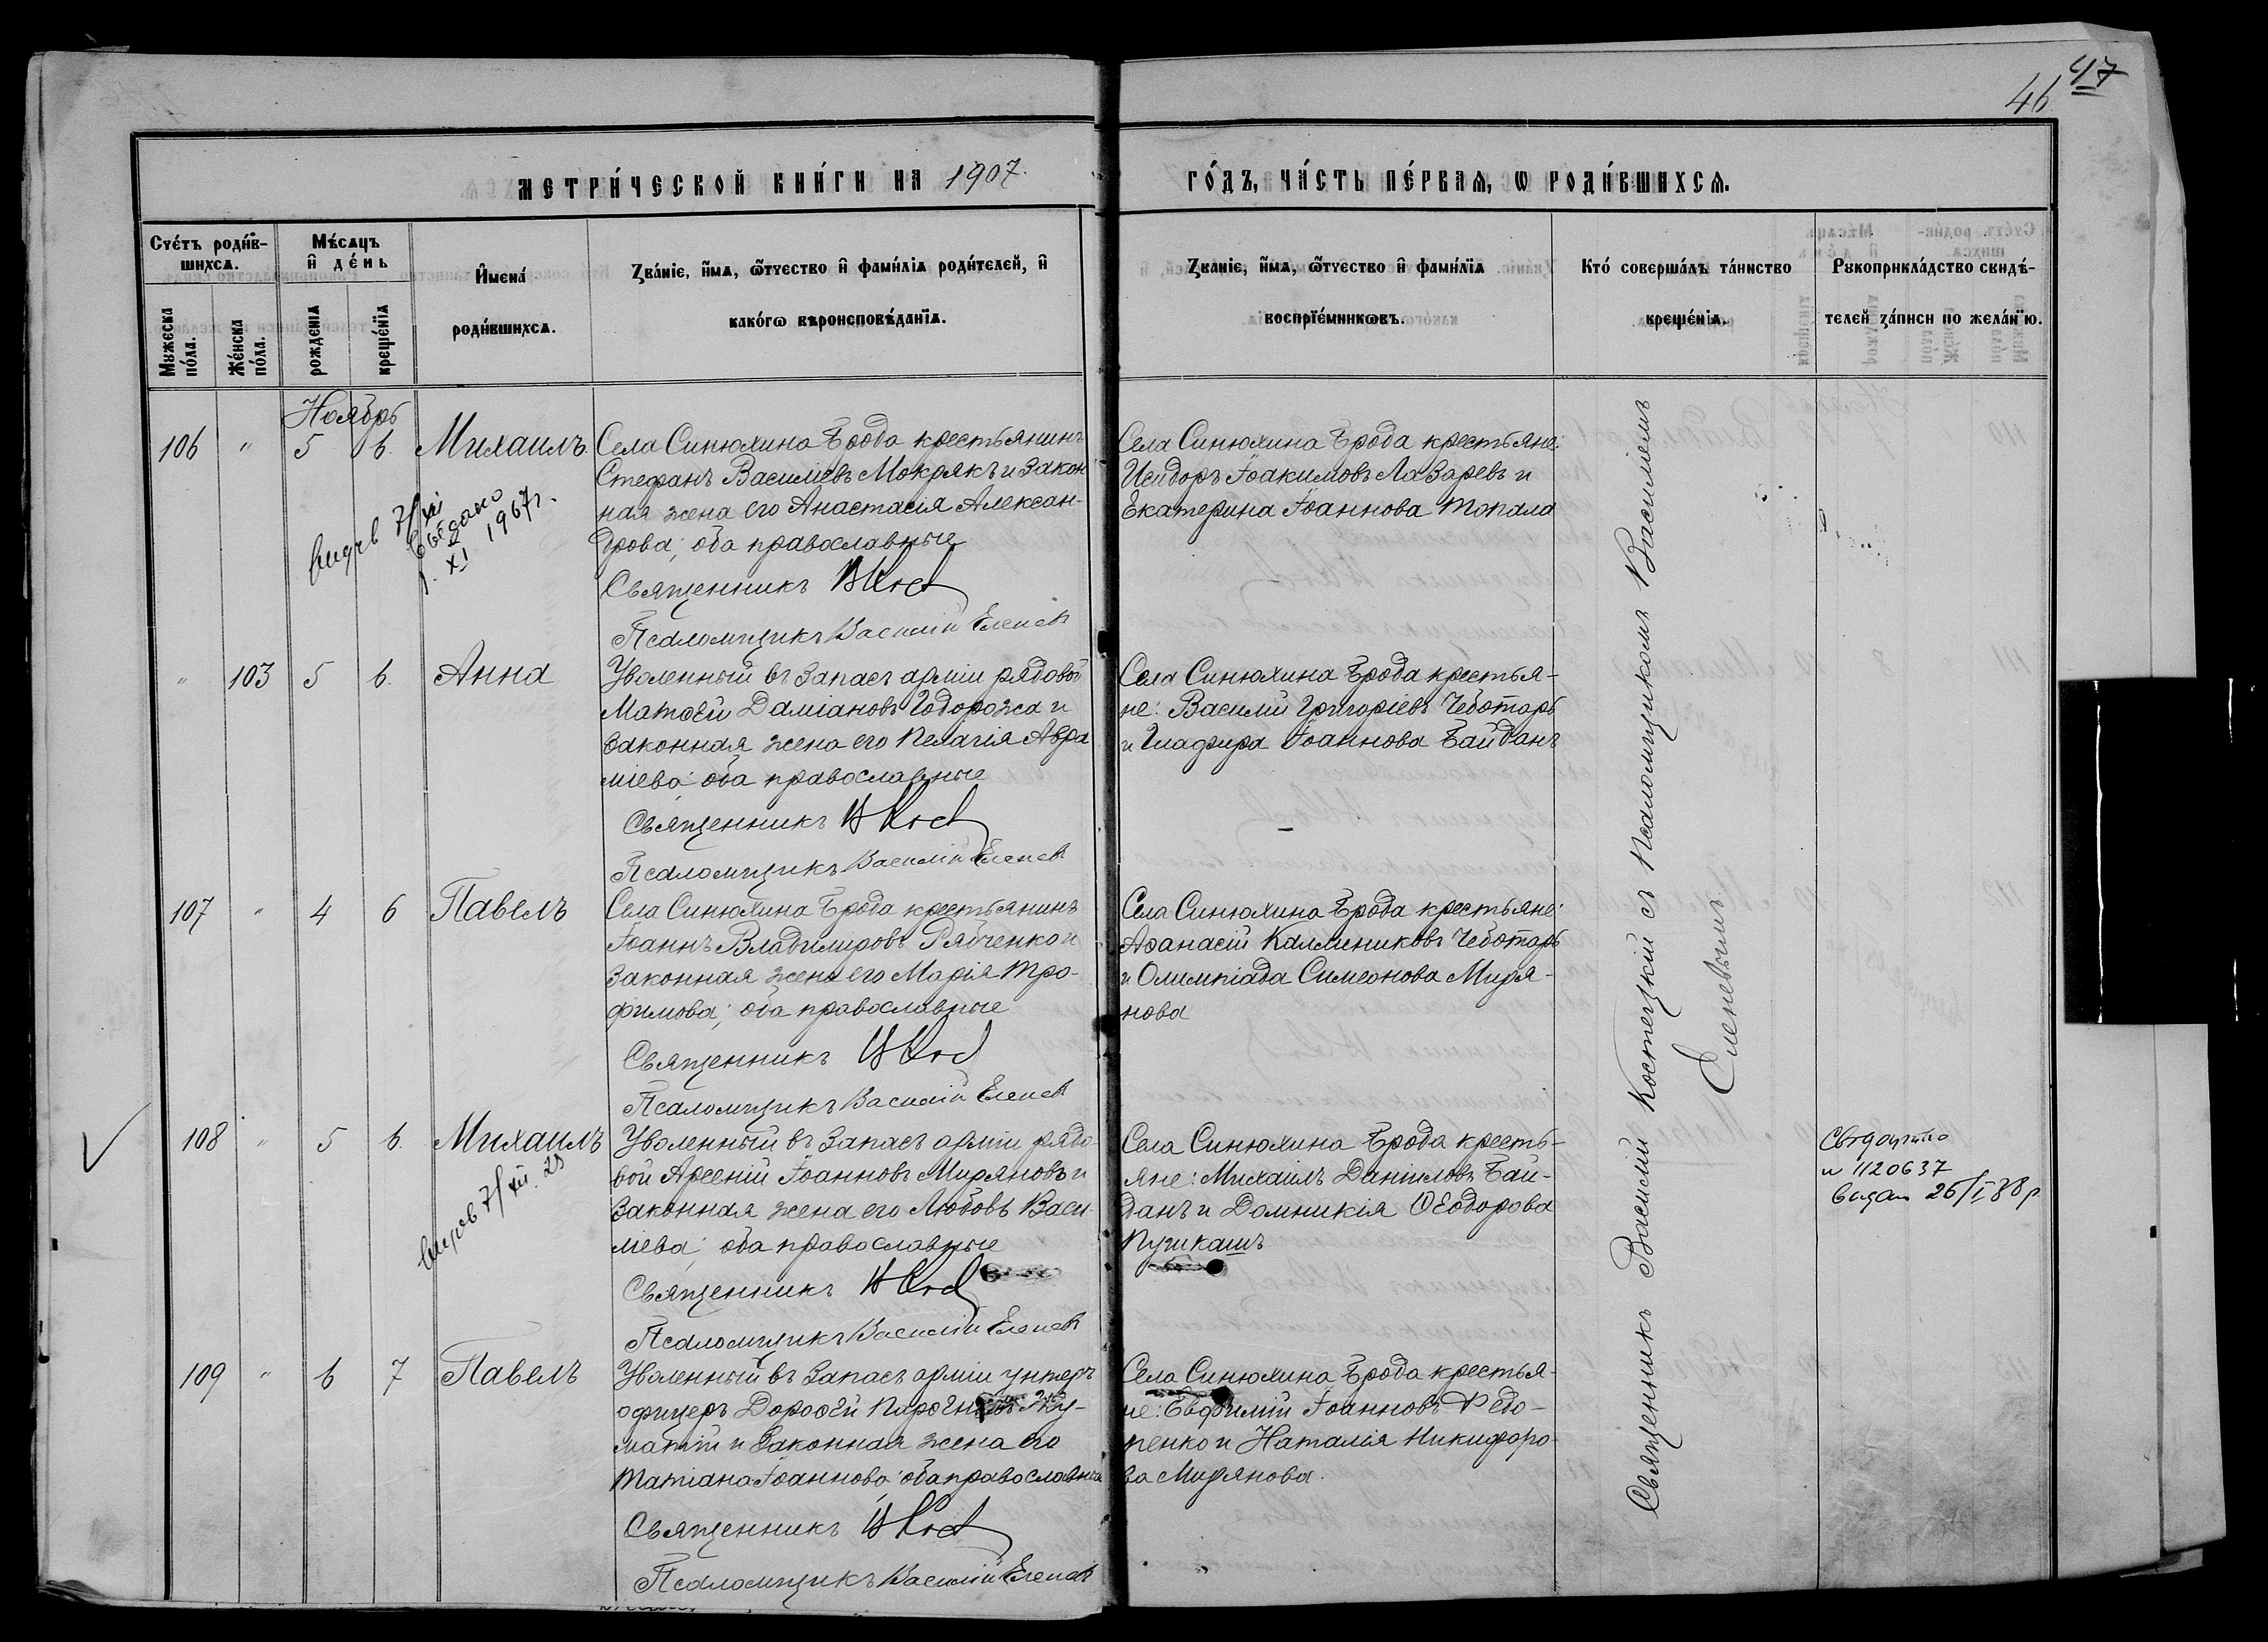 46 47
МЕТРИ́ЧЕСКОЙ КНИ́ГИ НА 1907. ГО́ДЪ, ЧА́СТЬ ПЕ́РВАЯ, Ѡ РОДИ́ВШИХСѦ.
Сче́тъ роди́в-
шихсѧ.
Мужеска
по́ла.
Же́нска
по́ла.
Мѣ́сѧцъ
и҆ де́нь
рожденіѧ
креще́нїѧ
И҆мена́
роди́вшихсѧ.
Зва́ніе, и҆́мѧ, ѻ҆́тчество и҆ фами́лїѧ роди́телей, и҆
како́гѡ вѣроисповѣ́данїѧ.
Званіе, и҆́мѧ, ѻ҆́тчество и҆ фами́лїѧ
воспрїе́мникѡвъ.
Кто́ соверша́лъ та́инство
креще́нїѧ.
Рукоприкла́дство свидѣ́-
телей за́писи по жела́нїю.
Ноябрь
106 " 5 6. Михаилъ.
Села Синюхина Брода крестьянинъ
Стефанъ Василіевъ Мокрякъ и закон
ная жена его Анастасія Алексан-
дрова; оба православные
Священникъ
Псаломщикъ Василій Еленев
XI 1967г.
Села Синюхина Брода крестьяне:
Исидоръ Іоакимовъ Лазаревъ и
Екатерина Іоаннова Топала
" 103 5 6. Анна
Уволенный въ запасъ арміи рядовой
Матѳей Даміановъ Годорожа и
законная жена его Пелагія Авра
міева; оба православные
Священникъ
Псаломщикъ Василій Еленев
Села Синюхина Брода крестья-
не: Василий Григоріевъ Чеботарь
и Глафира Іоаннова Байданъ
107 " 4 6 Павелъ
Села Синюхина Брода крестьянинъ
Іоаннъ Владиміровъ Рябченко и
законная жена его Марія Тро-
фимова; оба православные
Священникъ
Псаломщикъ Василій Еленев
Села Синюхина Брода крестьяне:
Аѳанасій Каллиниковъ Чеботарь
и Олимпіада Симеонова Миря-
нова
108 " 5 6. Михаилъ
Уволенный въ запасъ арміи рядо-
вой Арсеній Іоанновъ Миряновъ и
законная жена его Любовь Васи-
лева; оба православные
Священникъ
Псаломщикъ Василій Еленев
Села Синюхина Брода кресть-
яне: Михаилъ Даніиловъ Бай-
данъ и Домникія Ѳеодорова
Пушкашъ
1120637
26/I 88 р
109 " 6 7 Павелъ
Уволенный въ запасъ арміи унтеръ
офицеръ Дороѳей
и законная жена его
Татіана Іоаннова; оба православные
Священникъ
Псаломщикъ Василій Еленев
Села Синюхина Брода крестья-
не: Евфимій Іоанновъ Федо-
ренко и Наталія Никифоро-
ва Мирянова.
Священникъ Василій Костецкій съ Псаломщикомъ Василіемъ
Еленевымъ